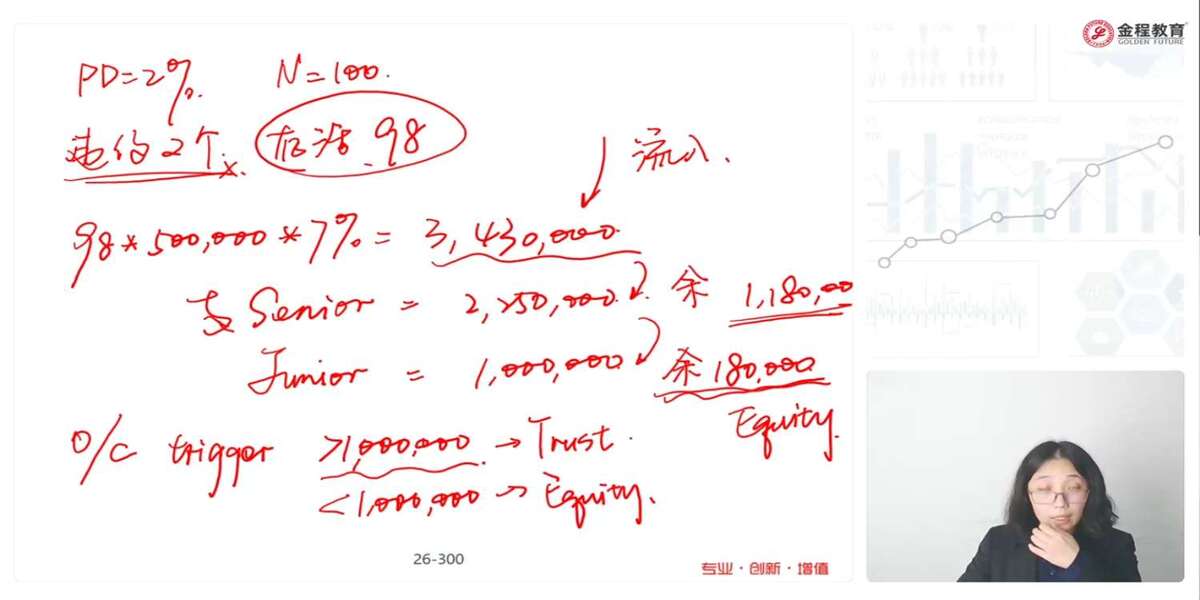 金程教育
GOLDEN FUTURE
PD=2%. N=100.
违约2个. 存活 98
流入.
98*500,000*7%= 3,430,000
支 Senior = 2,250,000. 余 1,180,00
Junior = 1,000,000 余 180,000
Equity.
O/C trigger >1,000,000 → Trust.
<1,000,000 → Equity.
26-300
专业·创新·增值